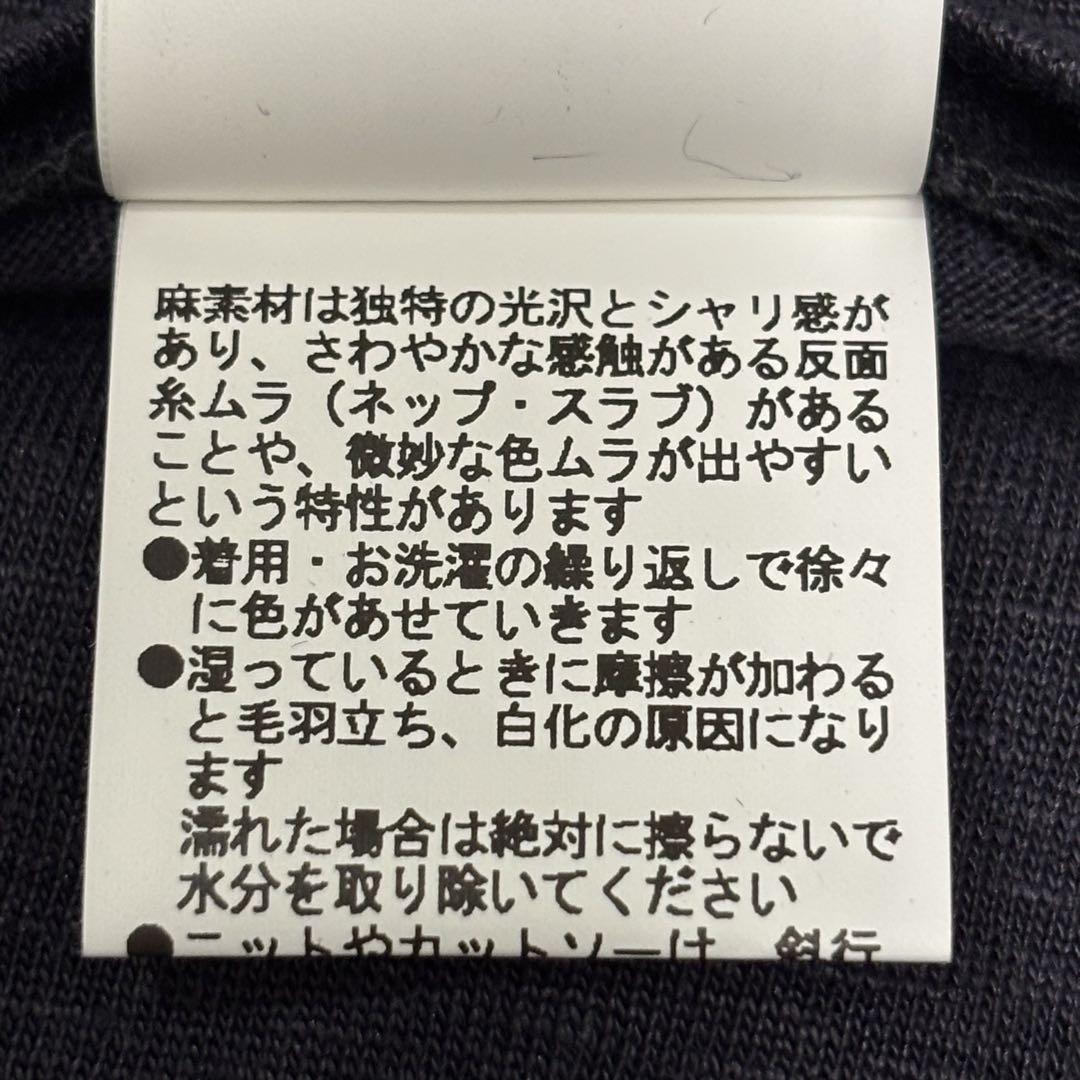 麻素材は独特の光沢とシャリ感が
あり、さわやかな感触がある反面
糸ムラ（ネップ・スラブ）がある
ことや、微妙な色ムラが出やすい
という特性があります
●着用・お洗濯の繰り返しで徐々
に色があせていきます
●湿っているときに摩擦が加わる
と毛羽立ち、白化の原因になり
ます
濡れた場合は絶対に擦らないで
水分を取り除いてください
●ニットやカットソーは、斜行